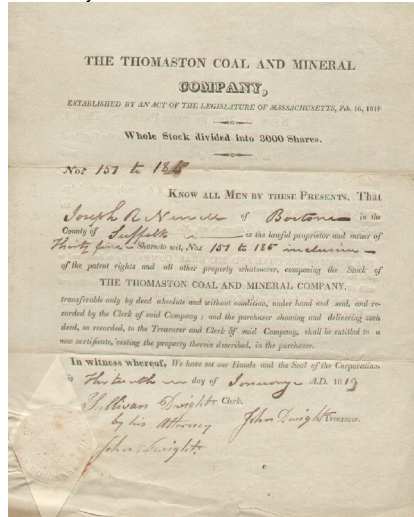 THE THOMASTON COAL AND MINERAL
COMPANY,
ESTABLISHED BY AN ACT OF THE LEGISLATURE OF MASSACHUSETTS, Feb. 16, 181
Whole Stock divided into 3000 Shares.
Nos 151 to 185
KNOW ALL MEN BY THESE PRESENTS, That
Joseph R of Boston in the
County of Suffolk is the lawful proprietor and owner of
Thirty five Shares to wit, Nos 151 to 185 inclusive
of the patent rights and all other property whatsoever, composing the Stock of
THE THOMASTON COAL AND MINERAL COMPANY,
transferable only by deed absolute and without condition, under hand and seal, and re-
corded by the Clerk of said Company; and the purchaser shewing and delivering such
deed, so recorded, to the Treasurer and Clerk of said Company, shall be entitled to a
new certificate, vesting the property therein described, in the purchaser.
In witness whereof, We have set our Hands and the Seal of the Corporation
day of January A.D. 1819
Sullivan Dwight Clerk.
by his Attorney John Dwight Treasurer.
John Dwight